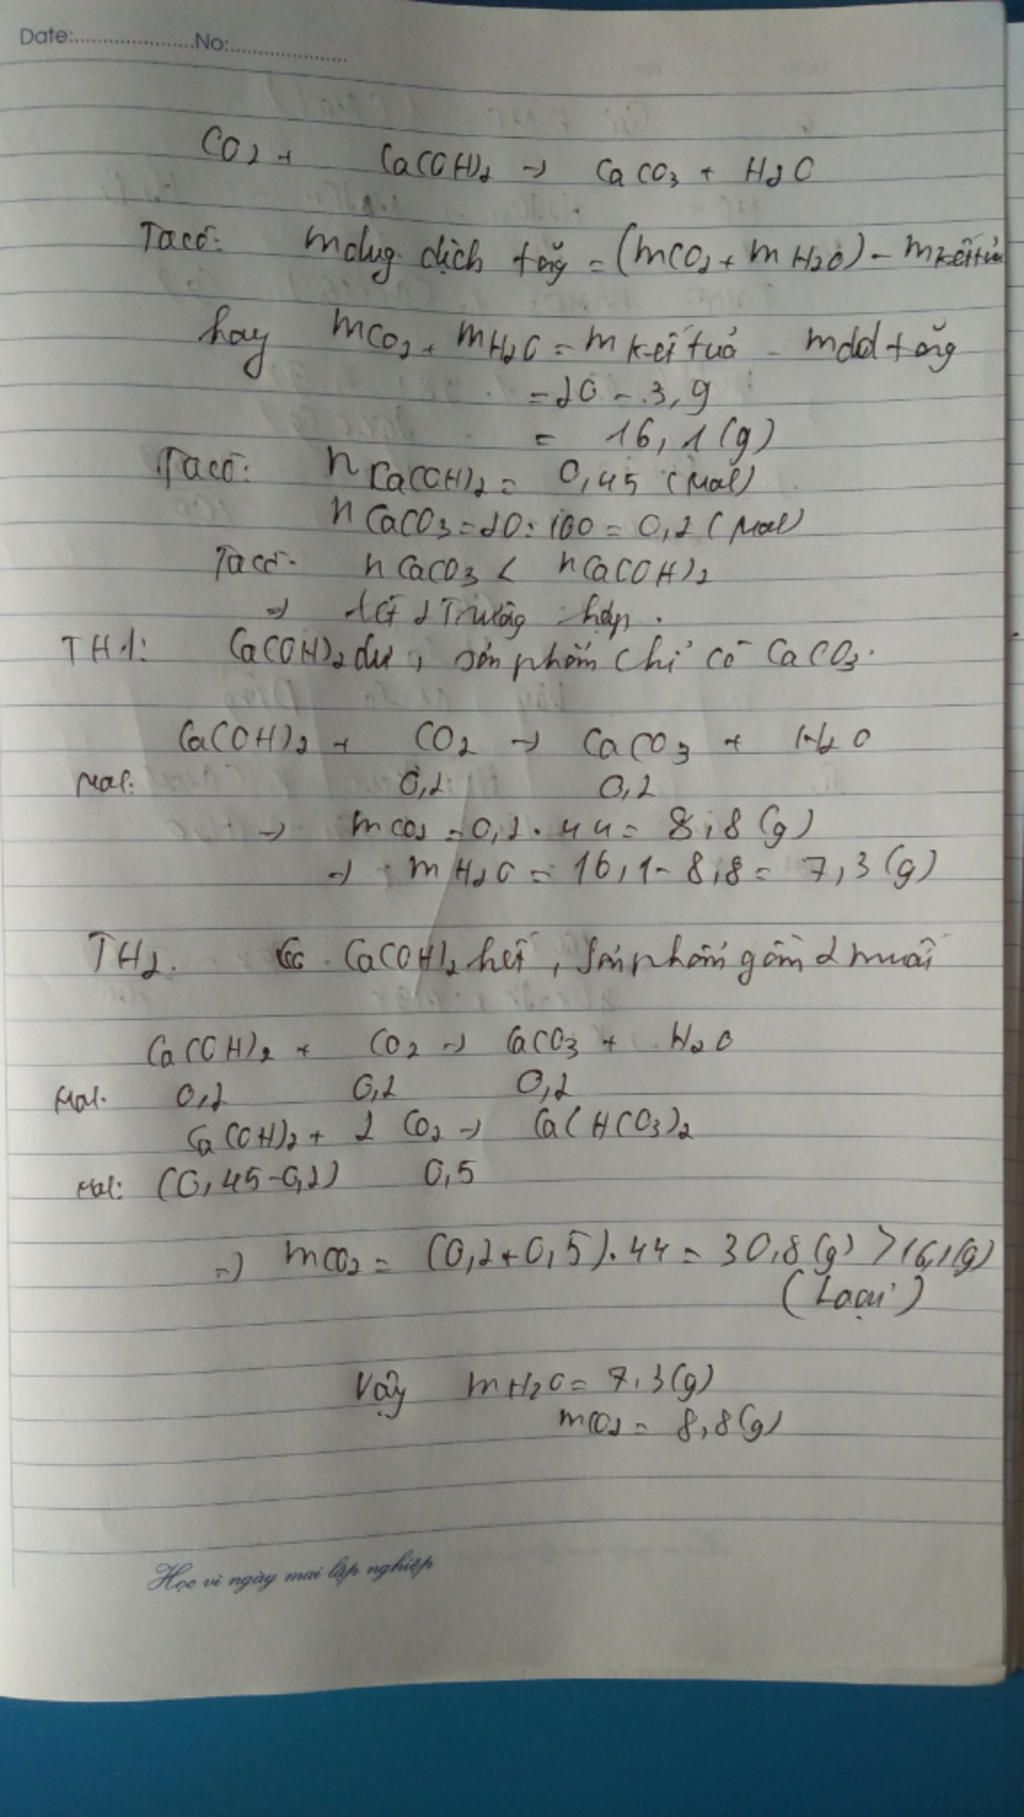 Date:.....................No:.....................
CO2 + Ca(OH)2 → CaCO3 + H2O
Ta có: mdung dịch tăng = (mCO2 + mH2O) - mkết tủa
hay mCO2 + mH2O = m kết tuả - mdd tăng
= 20 - 3,9
= 16,1 (g)
Ta có: nCa(OH)2 = 0,45 (mol)
nCaCO3 = 20 : 100 = 0,2 (mol)
Ta có: nCaCO3 < nCa(OH)2
⇒ 2 Trường hợp.
TH1: Ca(OH)2 dư, sản phẩm chỉ có CaCO3.
Ca(OH)2 + CO2 → CaCO3 + H2O
Mol: 0,2 0,2
⇒ mCO2 = 0,2 . 44 = 8,8 (g)
⇒ mH2O = 16,1 - 8,8 = 7,3 (g)
TH2. Ca(OH)2 hết, sản phẩm gồm 2 muối
Ca(OH)2 + CO2 → CaCO3 + H2O
Mol. 0,2 0,2 0,2
Ca(OH)2 + 2 CO2 → Ca(HCO3)2
Mol: (0,45-0,2) 0,5
⇒ mCO2 = (0,2+0,5).44 = 30,8 (g) > 16,1 (g)
(Loại)
Vậy mH2O = 7,3 (g)
mCO2 = 8,8 (g)
Học vì ngày mai lập nghiệp